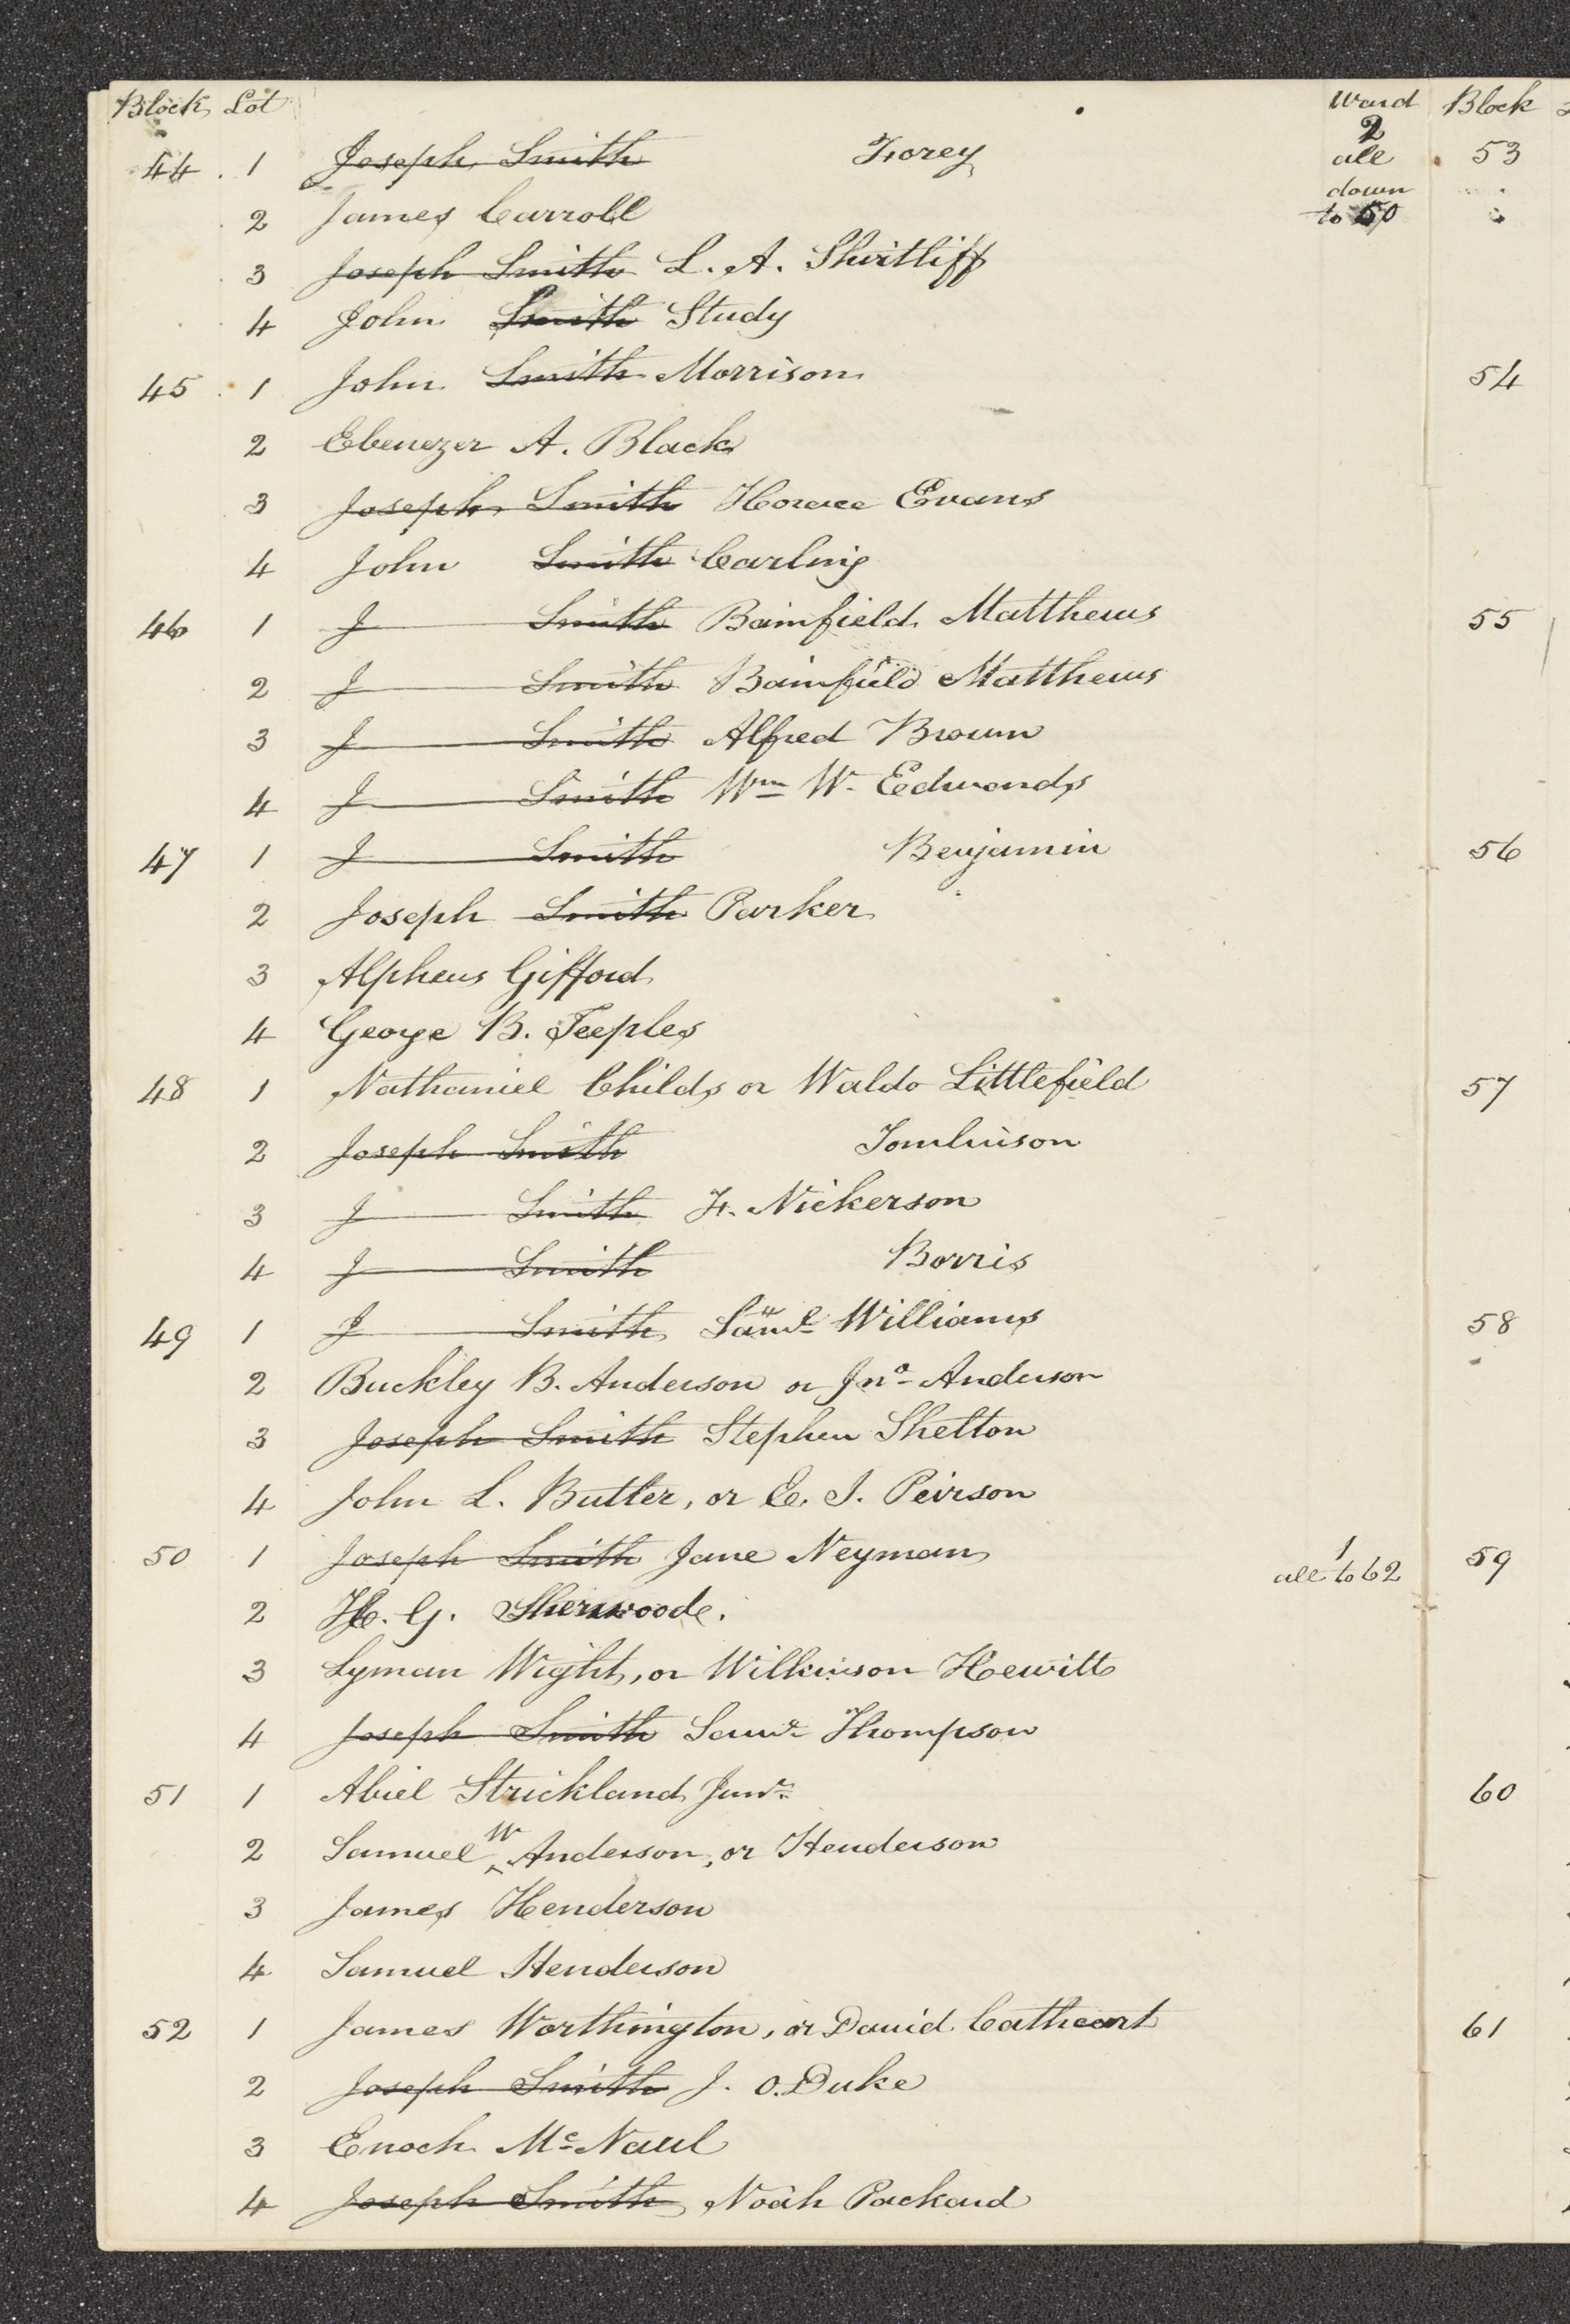 Block Lot Ward Block
44 1 Joseph Smith Forey 2 all 53
down
2 James Carroll to 50
3 Joseph Smith L. A. Shirtliff
4 John Smith Study
45 1 John Smith Morrison 54
2 Ebenezer A. Black
3 Joseph Smith Horace Evans
4 John Smith Carling
46 1 J Smith Bamfield Matthews 55
2 J Smith Bamfield Matthews
3 J Smith Alfred Brown
4 J Smith Wm W. Edwards
47 1 J Smith Benjamin 56
2 Joseph Smith Parker
3 Alpheus Gifford
4 George B. Teeples
48 1 Nathaniel Childs or Waldo Littlefield 57
2 Joseph Smith Tomlinson
3 J Smith F. Nickerson
4 J Smith Borris
49 1 J Smith Saml Williams 58
2 Buckley B. Anderson or Jno Anderson
3 Joseph Smith Stephen Shelton
4 John L. Butler, or E. J. Peirson
50 1 Joseph Smith Jane Neyman 1 all to 62 59
2 H. G. Sherwood.
3 Lyman Wight, or Wilkinson Hewitt
4 Joseph Smith Saml Thompson
51 1 Abiel Strickland Junr 60
2 Samuel W Anderson, or Henderson
3 James Henderson
4 Samuel Henderson
52 1 James Worthington, or David Cathcart 61
2 Joseph Smith J. O. Duke
3 Enoch Mc Naul
4 Joseph Smith Noah Packard